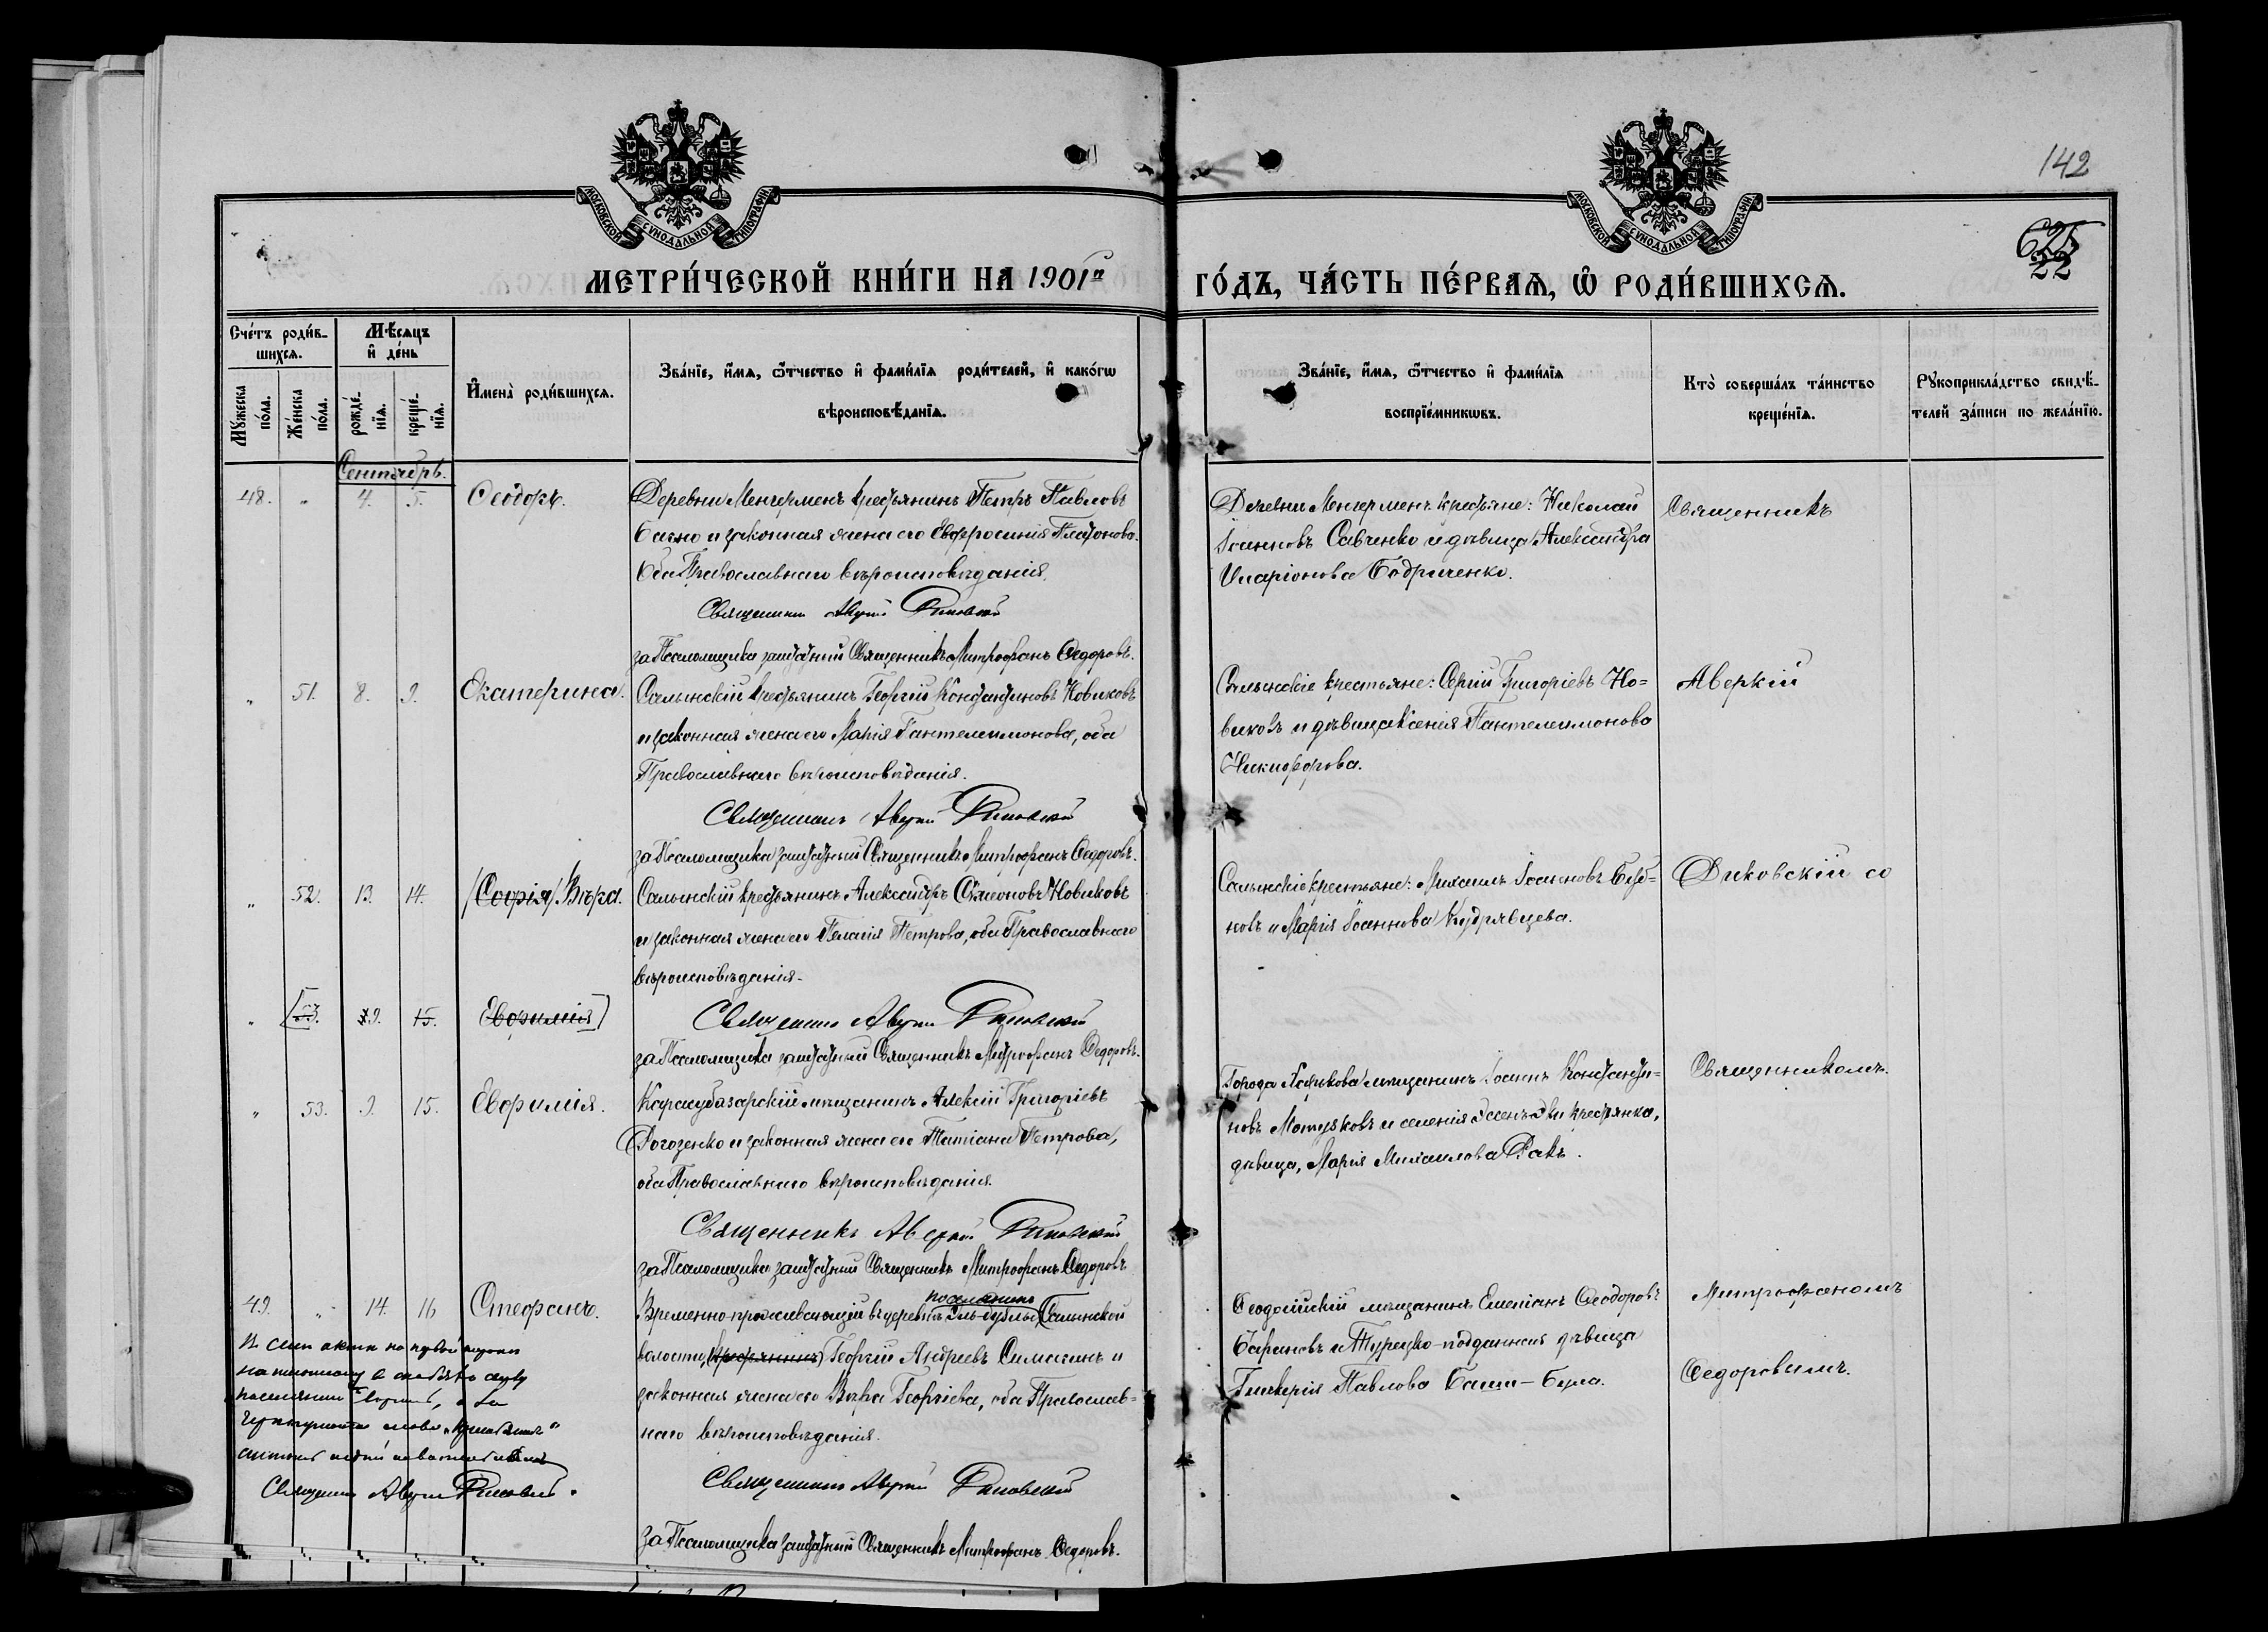 142
МОСКОВСКОЙ СѴНОДАЛЬНОЙ ТИПОГРАФІИ
МОСКОВСКОЙ СѴНОДАЛЬНОЙ ТИПОГРАФІИ
625
22
МЕТРИ́ЧЕСКОЙ КНИ́ГИ НА 1901й
ГО́ДЪ, ЧА́СТЬ ПЕ́РВАѦ, Ѡ҆ РОДИ́ВШИХСѦ.
Сче́тъ роди́в-
шихсѧ.
Мꙋжеска
по́ла.
Же́нска
по́ла.
Мѣ́сѧцъ
и҆ де́нь
рожде́-
нїѧ.
креще́-
нїѧ.
И҆мена̀ роди́вшихсѧ.
Зва́нїе, и҆́мѧ, ѻ҆́тчество и҆ фами́лїѧ роди́телей, и҆ како́гѡ
вѣроисповѣ́данїѧ.
Зва́нїе, и҆́мѧ, ѻ҆́тчество и҆ фами́лїѧ
воспрїе́мникѡвъ.
Кто̀ соверша́лъ та́инство
креще́нїѧ.
Рꙋкоприкла́дство свидѣ́-
телей за́писи по жела́нїю.
Сентябрь.
48. " 4. 5. Ѳеодоръ.
Деревни Менгерменъ крестьянинъ Петръ Павловъ
и законная жена его Евфросинія Платонова.
Оба Православнаго вѣроисповѣданія.
Священникъ Аверкій Диковскій
за Псаломщика заштатный Священникъ Митрофанъ Ѳедоровъ.
Деревни Менгерменъ крестьяне: Николай
Іоанновъ Савченко и дѣвица Александра
Иларіонова Бодриченко.
Священникъ
" 51. 8. 9. Екатерина.
Салынскій крестьянинъ Георгій Константиновъ Новиковъ
и законная жена его Марія Пантелеимонова, оба
Православнаго вѣроисповѣданія.
Священникъ Аверкій Диковскій
за Псаломщика заштатный Священникъ Митрофанъ Ѳедоровъ.
Салынскіе крестьяне: Сергій Григоріевъ Но=
виковъ и дѣвица Ксенія Пантелеимонова
Никифорова.
Аверкій
" 52. 13. 14. /Софія/ Вѣра.
Салынскій крестьянинъ Александръ Сѵмеоновъ Новиковъ
и законная жена его Пелагія Петрова, оба Православнаго
вѣроисповѣданія.
Священникъ Аверкій Диковскій
за Псаломщика заштатный Священникъ Митрофанъ Ѳедоровъ.
Салынскіе крестьяне: Михаилъ Іоанновъ
новъ и Марія Іоаннова Кудрявцева.
Диковскій со
" 53. 9. 15. Евфимія)
" 53. 9. 15. Евфимія.
Карасубазарскій мѣщанинъ Алексій Григоріевъ
Рогозенко и законная жена его Татіана Петрова,
оба Православнаго вѣроисповѣданія.
Священникъ Аверкій Диковскій
за Псаломщика заштатный Священникъ Митрофанъ Ѳедоровъ
Города Харькова мѣщанинъ Іоаннъ Константи=
новъ Мотузковъ и селенія крестьянка,
дѣвица, Марія Михаилова Ракъ.
Священникомъ
49. " 14. 16 Стефанъ.
поселянинъ
Временно проживающій въ деревнѣ Салынской
волости, (крестьянинъ) Георгій Андреевъ Симагинъ и
законная жена его Вѣра Георгіева, оба Православ=
наго вѣроисповѣданія.
Священникъ Аверкій Диковскій
за Псаломщика заштатный Священникъ Митрофанъ Ѳедоровъ.
Ѳеодосійскій мѣщанинъ Емеліанъ Ѳеодоровъ
Барановъ и Турецко-подданная дѣвица
Гликерія Павлова
Митрофаномъ
Ѳедоровымъ.
Въ семъ актѣ на первой
слово „крестьянинъ“
Священникъ Аверкій Диковскій.